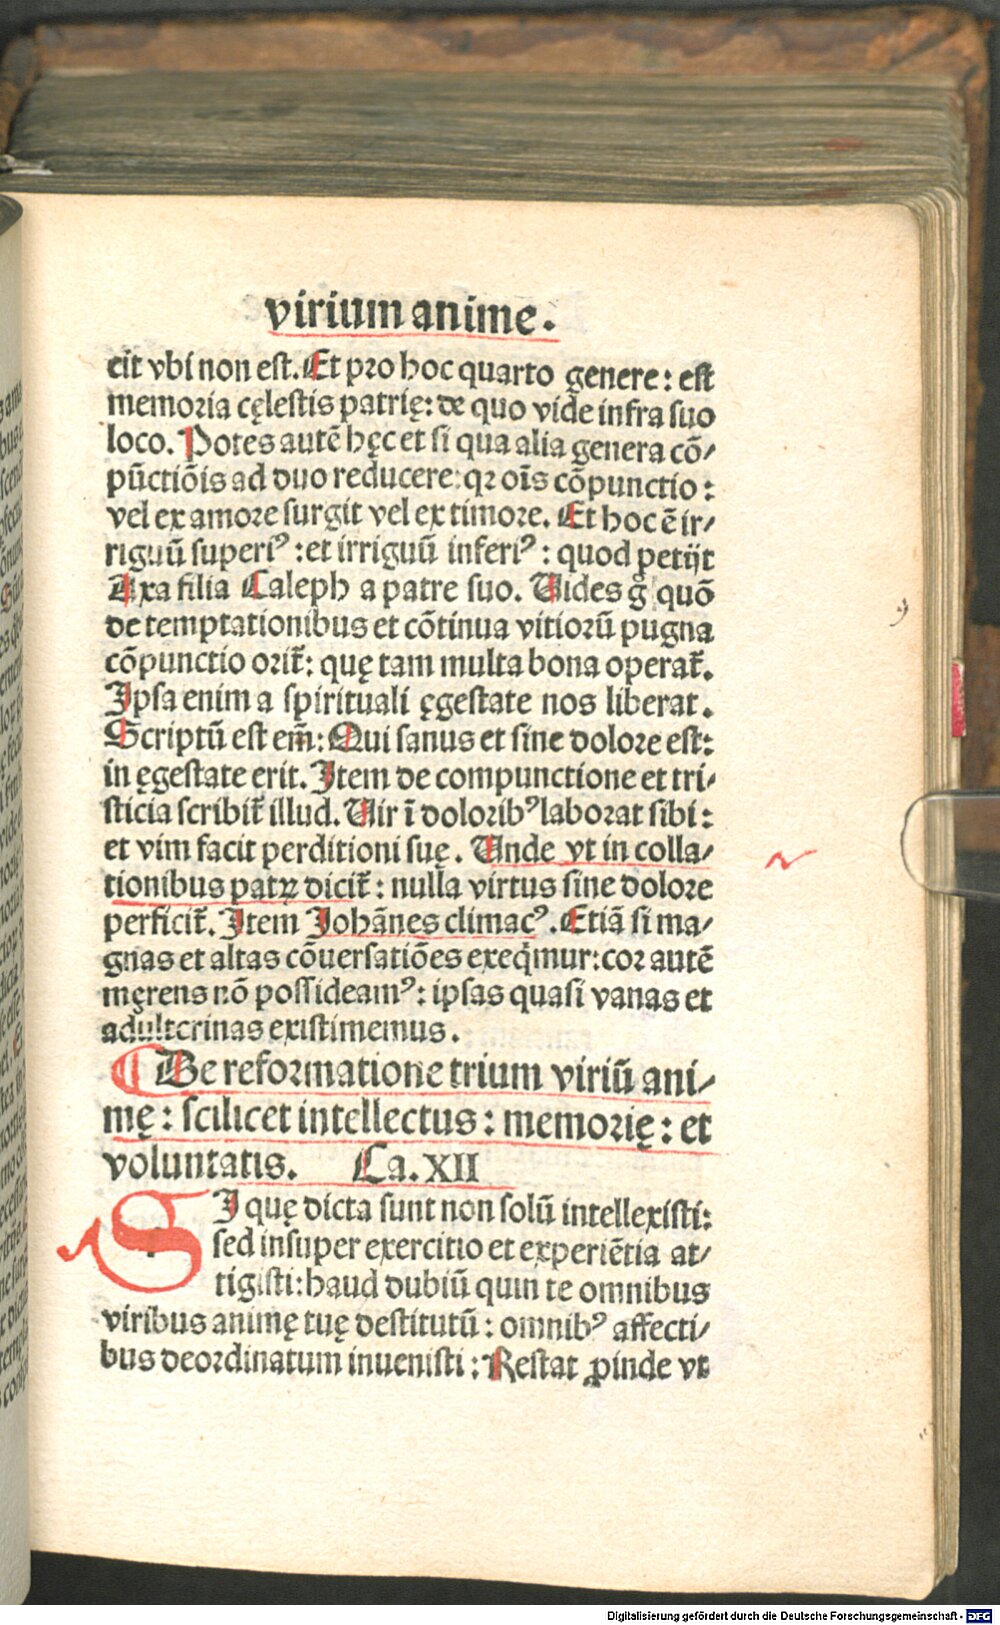 virium anime.
cit vbi non est. Et pro hoc quarto genere: est
memoria cęlestis patrię: de quo vide infra suo
loco. Potes autē hęc et si qua alia genera cō/
pūctiōis ad duo reducere: qꝛ oīs cōpunctio:
vel ex amore surgit vel ex timore. Et hoc ē ir/
riguū superiꝰ: et irriguū inferiꝰ: quod petijt
Axa filia Caleph a patre suo. Uides g̊ quō
de temptationibus et cōtinua vitiorū pugna
cōpunctio orit̄: quę tam multa bona operat̄.
Ipsa enim a spirituali ęgestate nos liberat.
Scriptū est em̄: Qui sanus et sine dolore est:
in ęgestate erit. Item de compunctione et tri/
sticia scribit̄ illud. Uir ī doloribꝰ laborat sibi:
et vim facit perditioni suę. Unde vt in colla/
tionibus patꝝ dicit̄: nulla virtus sine dolore
perficit̄. Item Johānes climacꝰ. Etiā si ma/
gnas et altas cōuersatiōes exeq̄mur: cor autē
męrens nō possideamꝰ: ipsas quasi vanas et
adulterinas existimemus.
De reformatione trium viriū ani/
mę: scilicet intellectus: memorię: et
voluntatis. Ca. XII
SI quę dicta sunt non solū intellexisti:
sed insuper exercitio et experiētia at/
tigisti: haud dubiū quin te omnibus
viribus animę tuę destitutū: omnibꝰ affecti/
bus deordinatum inuenisti: Restat ꝓinde vt
Digitalisierung gefördert durch die Deutsche Forschungsgemeinschaft - DFG